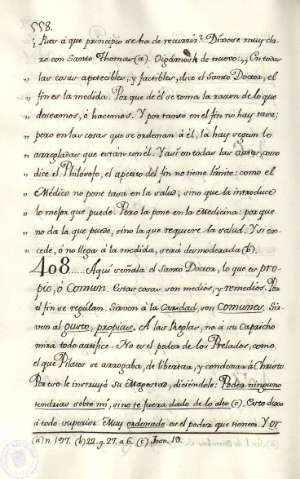 558.
¿Pues á que principio se ha de recurrir? Dixose muy cla-
ro con Santo Thomas (a). Oigamosle de nuevo: ,, En todas
,, las cosas apetecibles, y factibles, dice el Santo Doctor, el
,, fin es la medida. Porque de él se toma la razon de lo que
,, deseamos, ó hacemos. Y por tanto en el fin no hay tasa;
,, pero en las cosas que se ordenan á él, la hay segun lo
,, arregladas que están con él. Y asi en todas las Artes, como
,, dice el Philósofo, el apetito del fin no tiene límite: como el
,, Médico no pone tasa en la salud, sino que la introduce
,, lo mejor que puede. Pero la pone en la Medicina: por que
,, no da la que puede, sino la que requiere la salud. Y si ex-
,, cede, ó no llega á la medida, será desmoderada (b).
408. Aqui señala el Santo Doctor, lo que es pro-
pio, ó comun. Estas cosas son medios, y remedios. Por
el fin se regulan. Sirven á la Caridad, son Comunes. Sir-
ven al gusto, propias. A las Reglas, no á su Capricho
mira todo arreglo. No es el poder de los Prelados, como
el que Pilatos se arrogaba, de libertar, y condenar á Christo
Pero le instruyó su Magestad, diciendole: Poder ninguno
tendrias sobre mi, si no te fuera dado de lo alto (c). Esto dice
á todo superior. Muy ordenado es el poder que tienen. Y or-
(a) n. 197. (b) 22. q. 27. a 6. (c) Joan. 19.